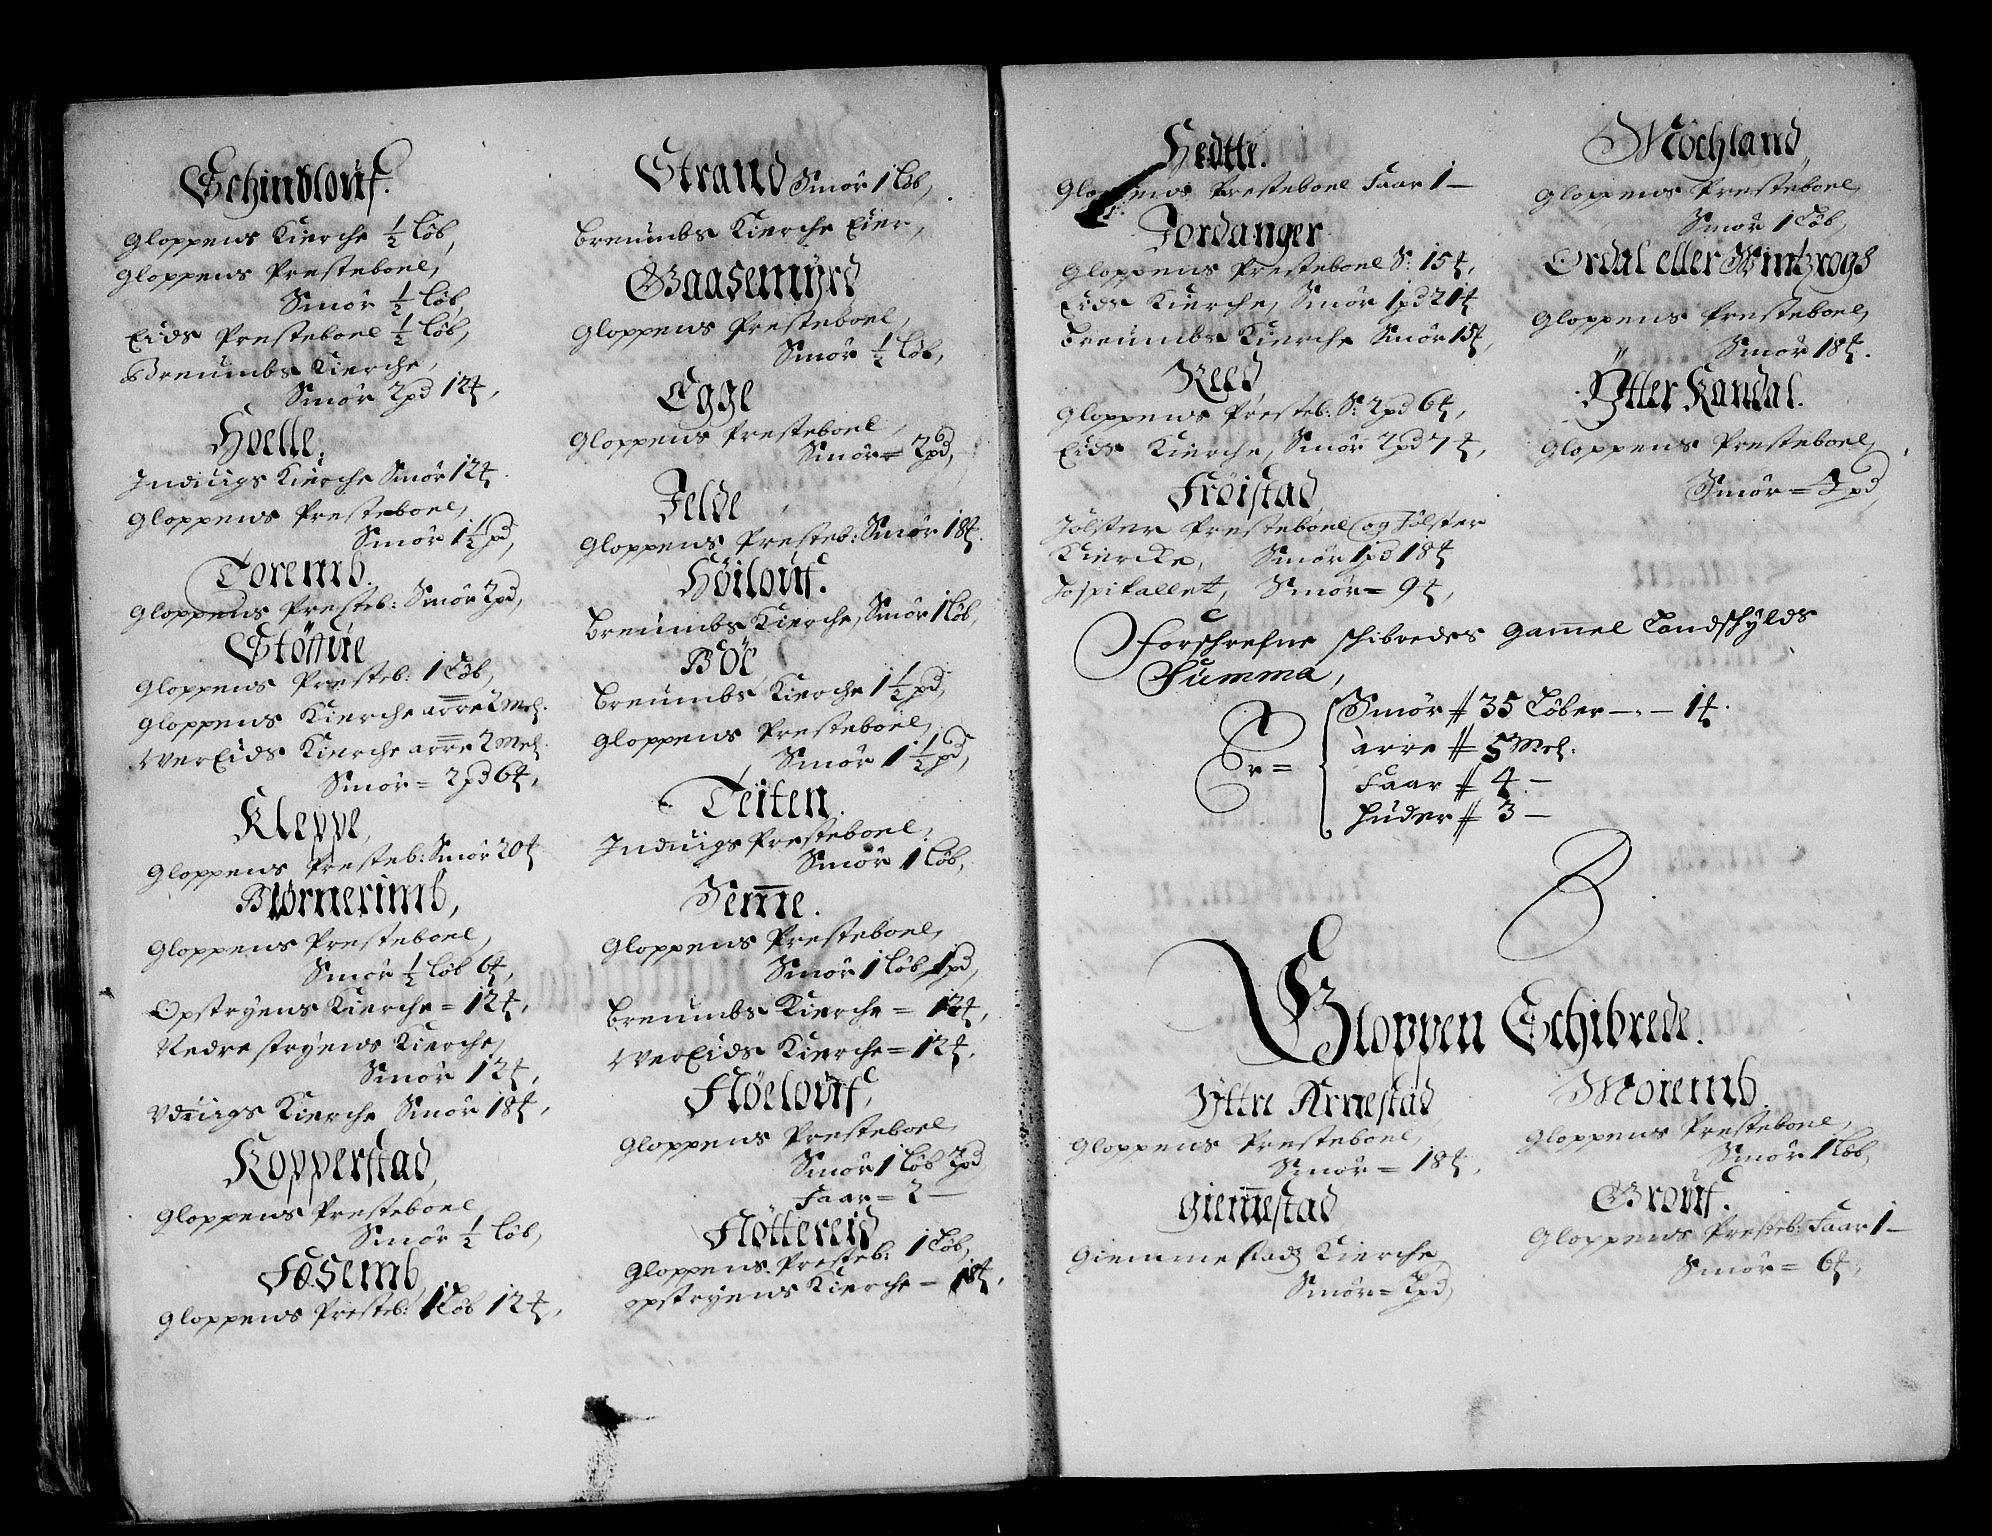 Schindlouf.
Gloppens Kierche ½ Løb,
Gloppens Presteboel,
Smör ½ Løb,
Eids Presteboel ½ Løb,
Breumbs Kierche,
Smör 2 pd 12 ℔,
Hoelle.
Induigs Kierche Smör 12 ℔
Gloppens Presteboel,
Smör 1½ pd,
Toremb.
Gloppens Presteb: Smör 2 pd,
Gloppens Presteb: 1 Løb,
Gloppens Kierche arre 2 Mel.
Eids Kierche arre 2 Mel.
Smör = 2 pd 6 ℔,
Kleppe,
Gloppens Presteb: Smör 20 ℔
Biørnerimb,
Gloppens Presteboel,
Smör ½ Løb 6 ℔,
Opstryens Kierche = 12 ℔,
Nedre stryens Kierche,
Smör 12 ℔,
Vduigs Kierche Smör 18 ℔,
Kopperstad,
Gloppens Presteboel,
Smör ½ Løb,
Fosemb,
Gloppens Presteb: 1 Løb 12 ℔,
Strand Smör 1 Løb,
Breumbs Kierche Eier,
Gaasemyrd
Gloppens Presteboel,
Smör ½ Løb,
Egge
Gloppens Presteboel,
Smör = 2 pd,
Jelde,
Gloppens Presteb: Smör 18 ℔.
Höilouf.
Breumbs Kierche, Smör 1 Løb,
Böe,
Breumbs Kierche 1½ pd,
Gloppens Presteboel,
Smör 1½ pd,
Teiten.
Induigs Presteboel,
Smör 1 Løb,
Semme.
Gloppens Presteboel,
Smör 1 Løb 1 pd,
Breumbs Kierche = 12 ℔,
Eids Kierche = 12 ℔.
Flöelouf,
Gloppens Presteboel,
Smör 1 Løb 2 pd
Faar = 2 —
Flöttereid
Gloppens Presteb: 1 Løb,
opstryens Kierche = 18 ℔,
Hedtte.
Gloppens Presteboel Faar 1 —
Jordanger
Gloppens Presteboel S: 15 ℔,
Eids Kierche, Smör 1 pd 21 ℔
Breumbs Kierche Smör 15 ℔,
Reed
Gloppens Presteb: S: 2 pd 6 ℔,
Eids Kierche, Smör 2 pd 7 ℔,
Fröistad,
Jölster Presteboel og Jölster
Kiercke, Smör 1 pd 18 ℔
Hospitallet, Smör = 9 ℔,
Möchland,
Gloppens Presteboel,
Smör 1 Løb,
Ordal eller
Gloppens Presteboel,
Smör 18 ℔.
Ÿtter Kandal.
Gloppens Presteboel,
Smör = 2 pd,
Forschrefne schibredes Gamel Landschylds
Summa,
Er =
Smör # 35 Löber — . — 1 ℔.
arre # 5 Mel.
Faar # 4 —
Huder # 3 —
Gloppen Schibrede.
Yttre Arnestad,
Gloppens Presteboel,
Smör = 18 ℔,
Giemmestad,
Giemmestads Kierche,
Smör = 2 pd,
Moiemb.
Gloppens Presteboel,
Smör 1 Løb,
Grouf.
Gloppens Presteb: Faar 1 —
Smör = 6 ℔,